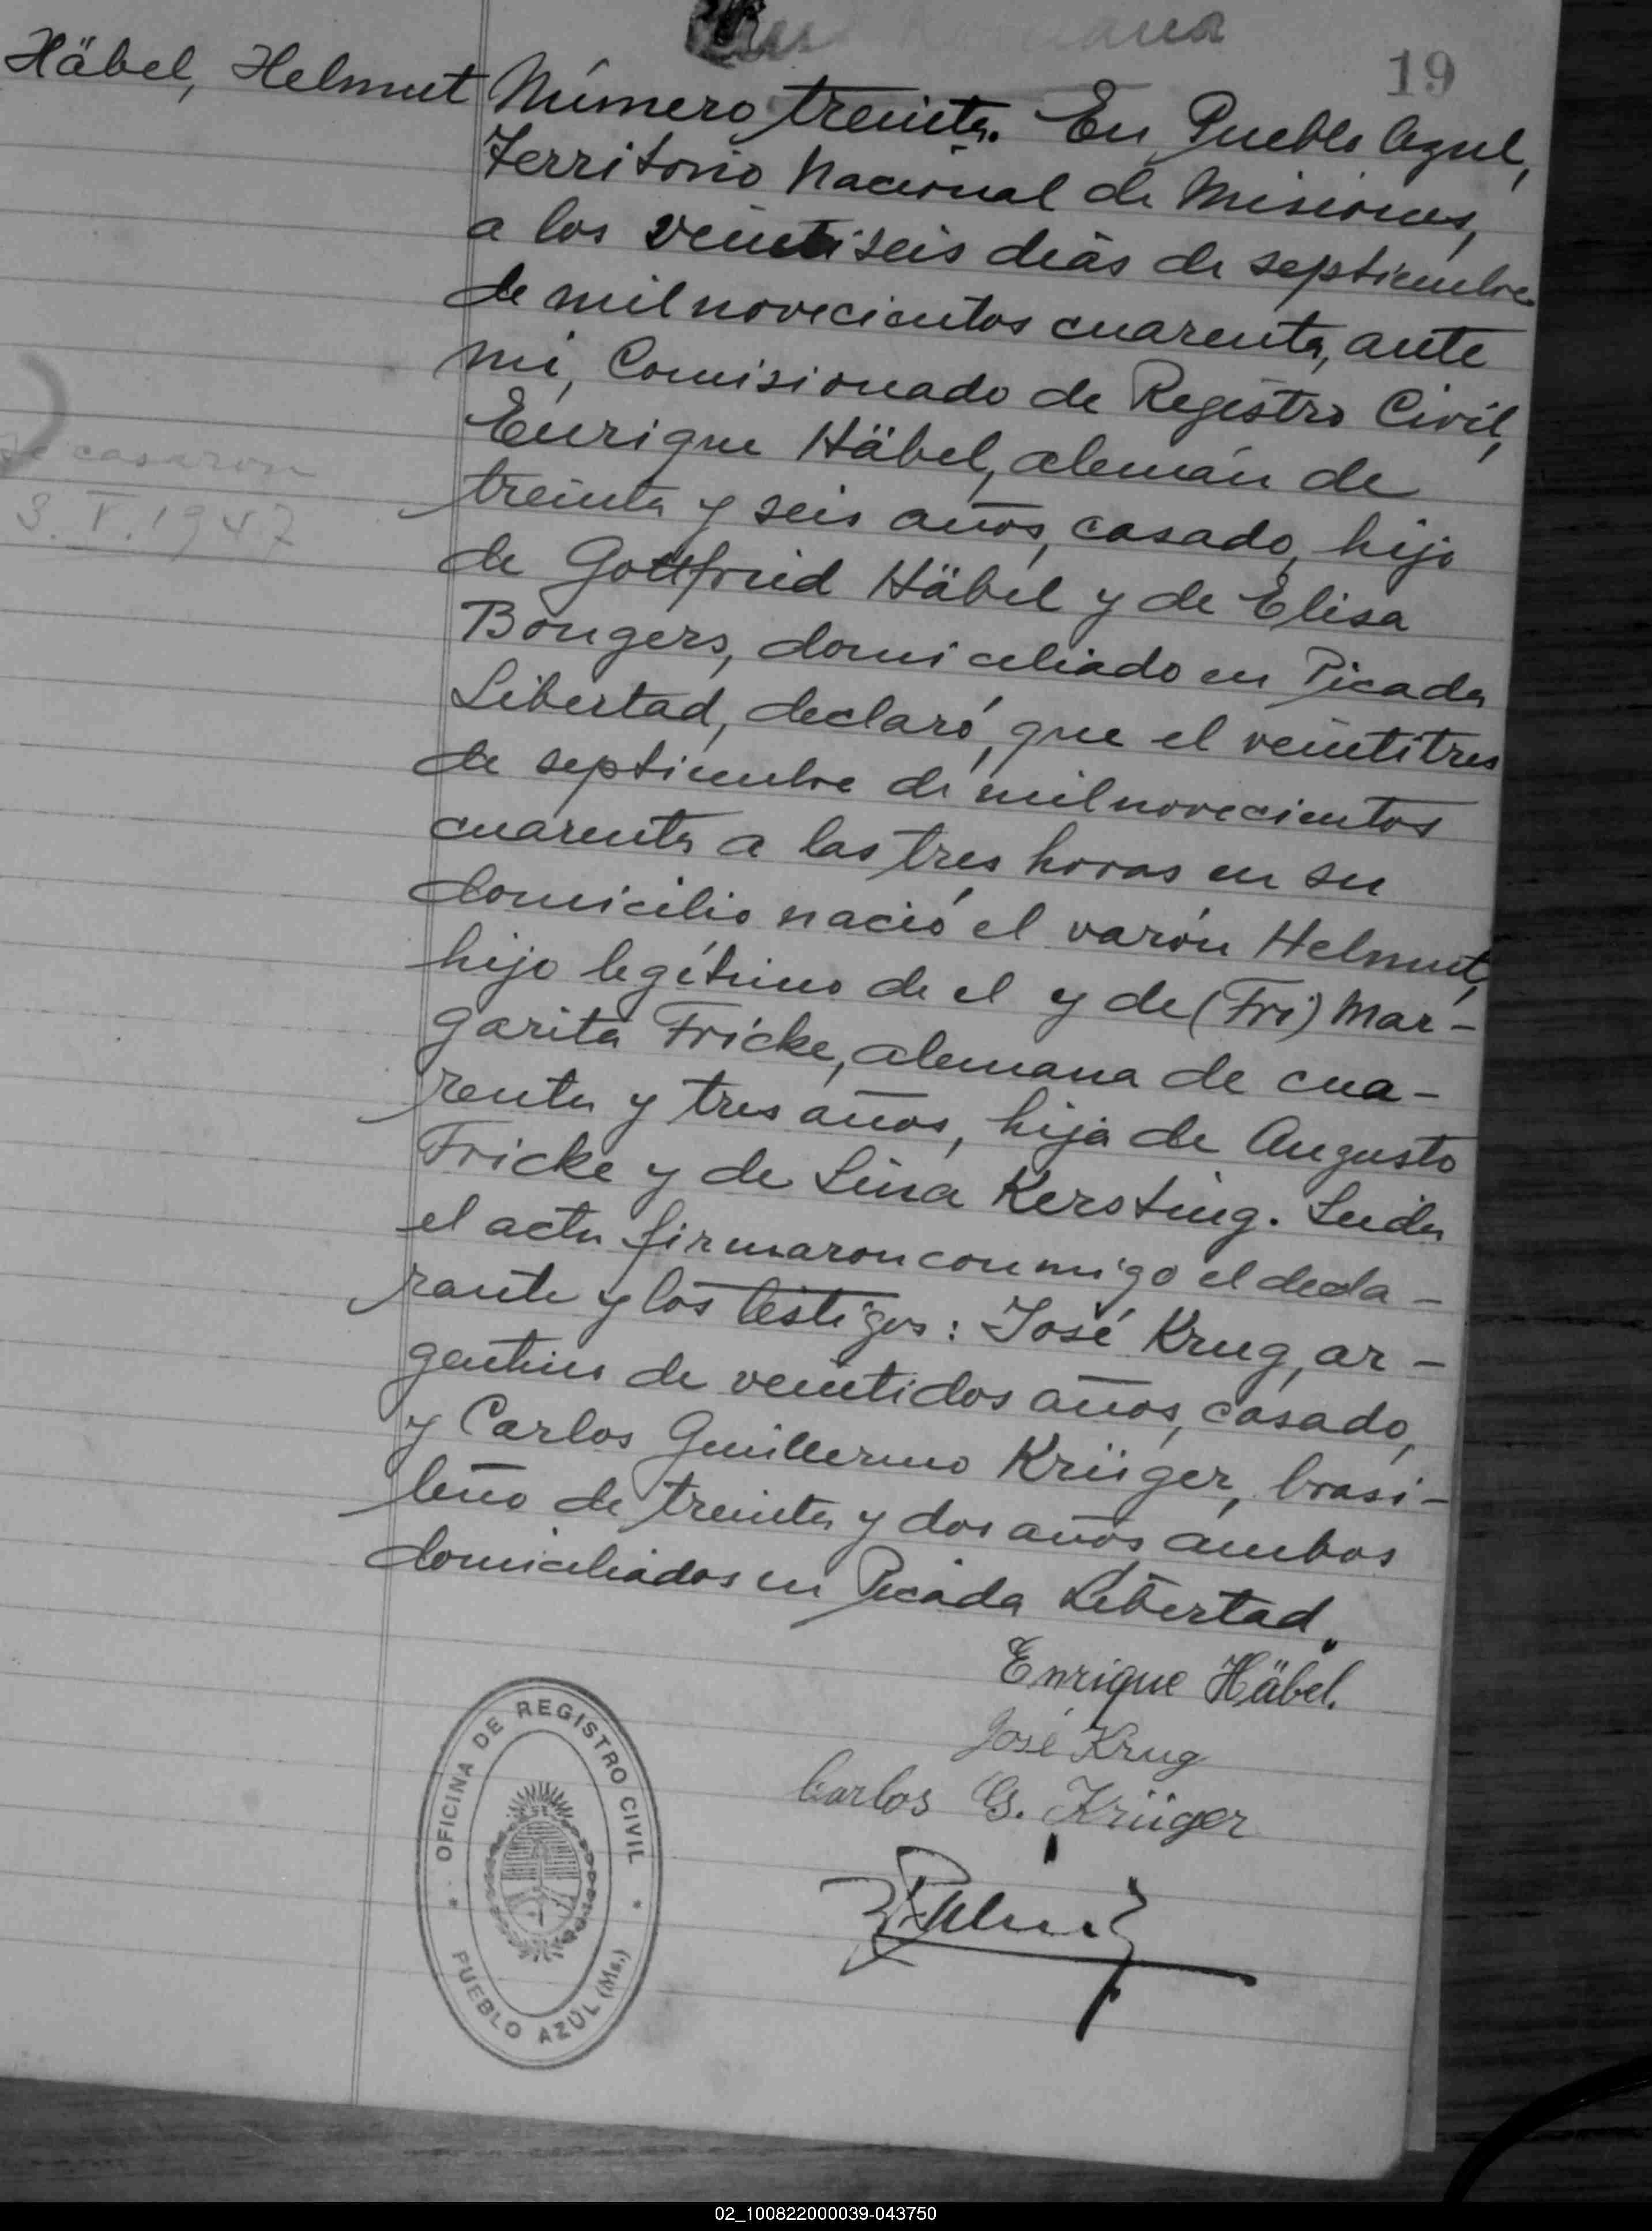 19
Häbel, Helmut
Número treinta. En Pueblo Azul,
Territorio Nacional de Misiones,
a los veintiseis dias de septiembre
de mil novecientos cuarenta, ante
mi, Comisionado de Registro Civil,
Enrique Häbel, alemán de
treinta y seis años, casado, hijo
de Gottfried Häbel y de Elisa
Bongers, domiciliado en Picada
Libertad, declaró, que el veintitres
de septiembre de mil novecientos
cuarenta a las tres horas en su
domicilio nació el varón Helmut,
hijo legítimo de el y de (Fri) Mar-
garita Fricke, alemana de cua-
renta y tres años, hija de Augusto
Fricke y de Lina Kersting. Leida
el acta firmaron conmigo el decla-
rante y los testigos: José Krug, ar-
gentino de veintidos años, casado,
y Carlos Guillermo Krüger, brasi-
leño de treinta y dos años, ambos
domiciliados en Picada Libertad.
casaron
3. V. 1947
Enrique Häbel.
José Krug
Carlos G. Krüger
OFICINA DE REGISTRO CIVIL
PUEBLO AZÚL (Ms.)
02_100822000039-043750